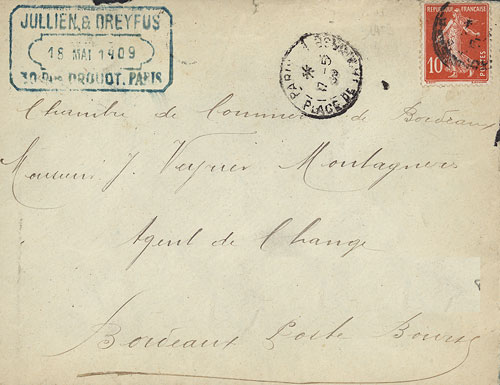 JULLIEN & DREYFUS
18 MAI 1909
30 Rue DROUOT. PARIS
PARIS
17 - 5
09
PLACE DE
REPUBLIQUE FRANÇAISE
10
POSTES
Chambre de Commerce de Bordeaux
Monsieur J. Veyrier Montagnères
Agent de Change
Bordeaux Poste Bourse